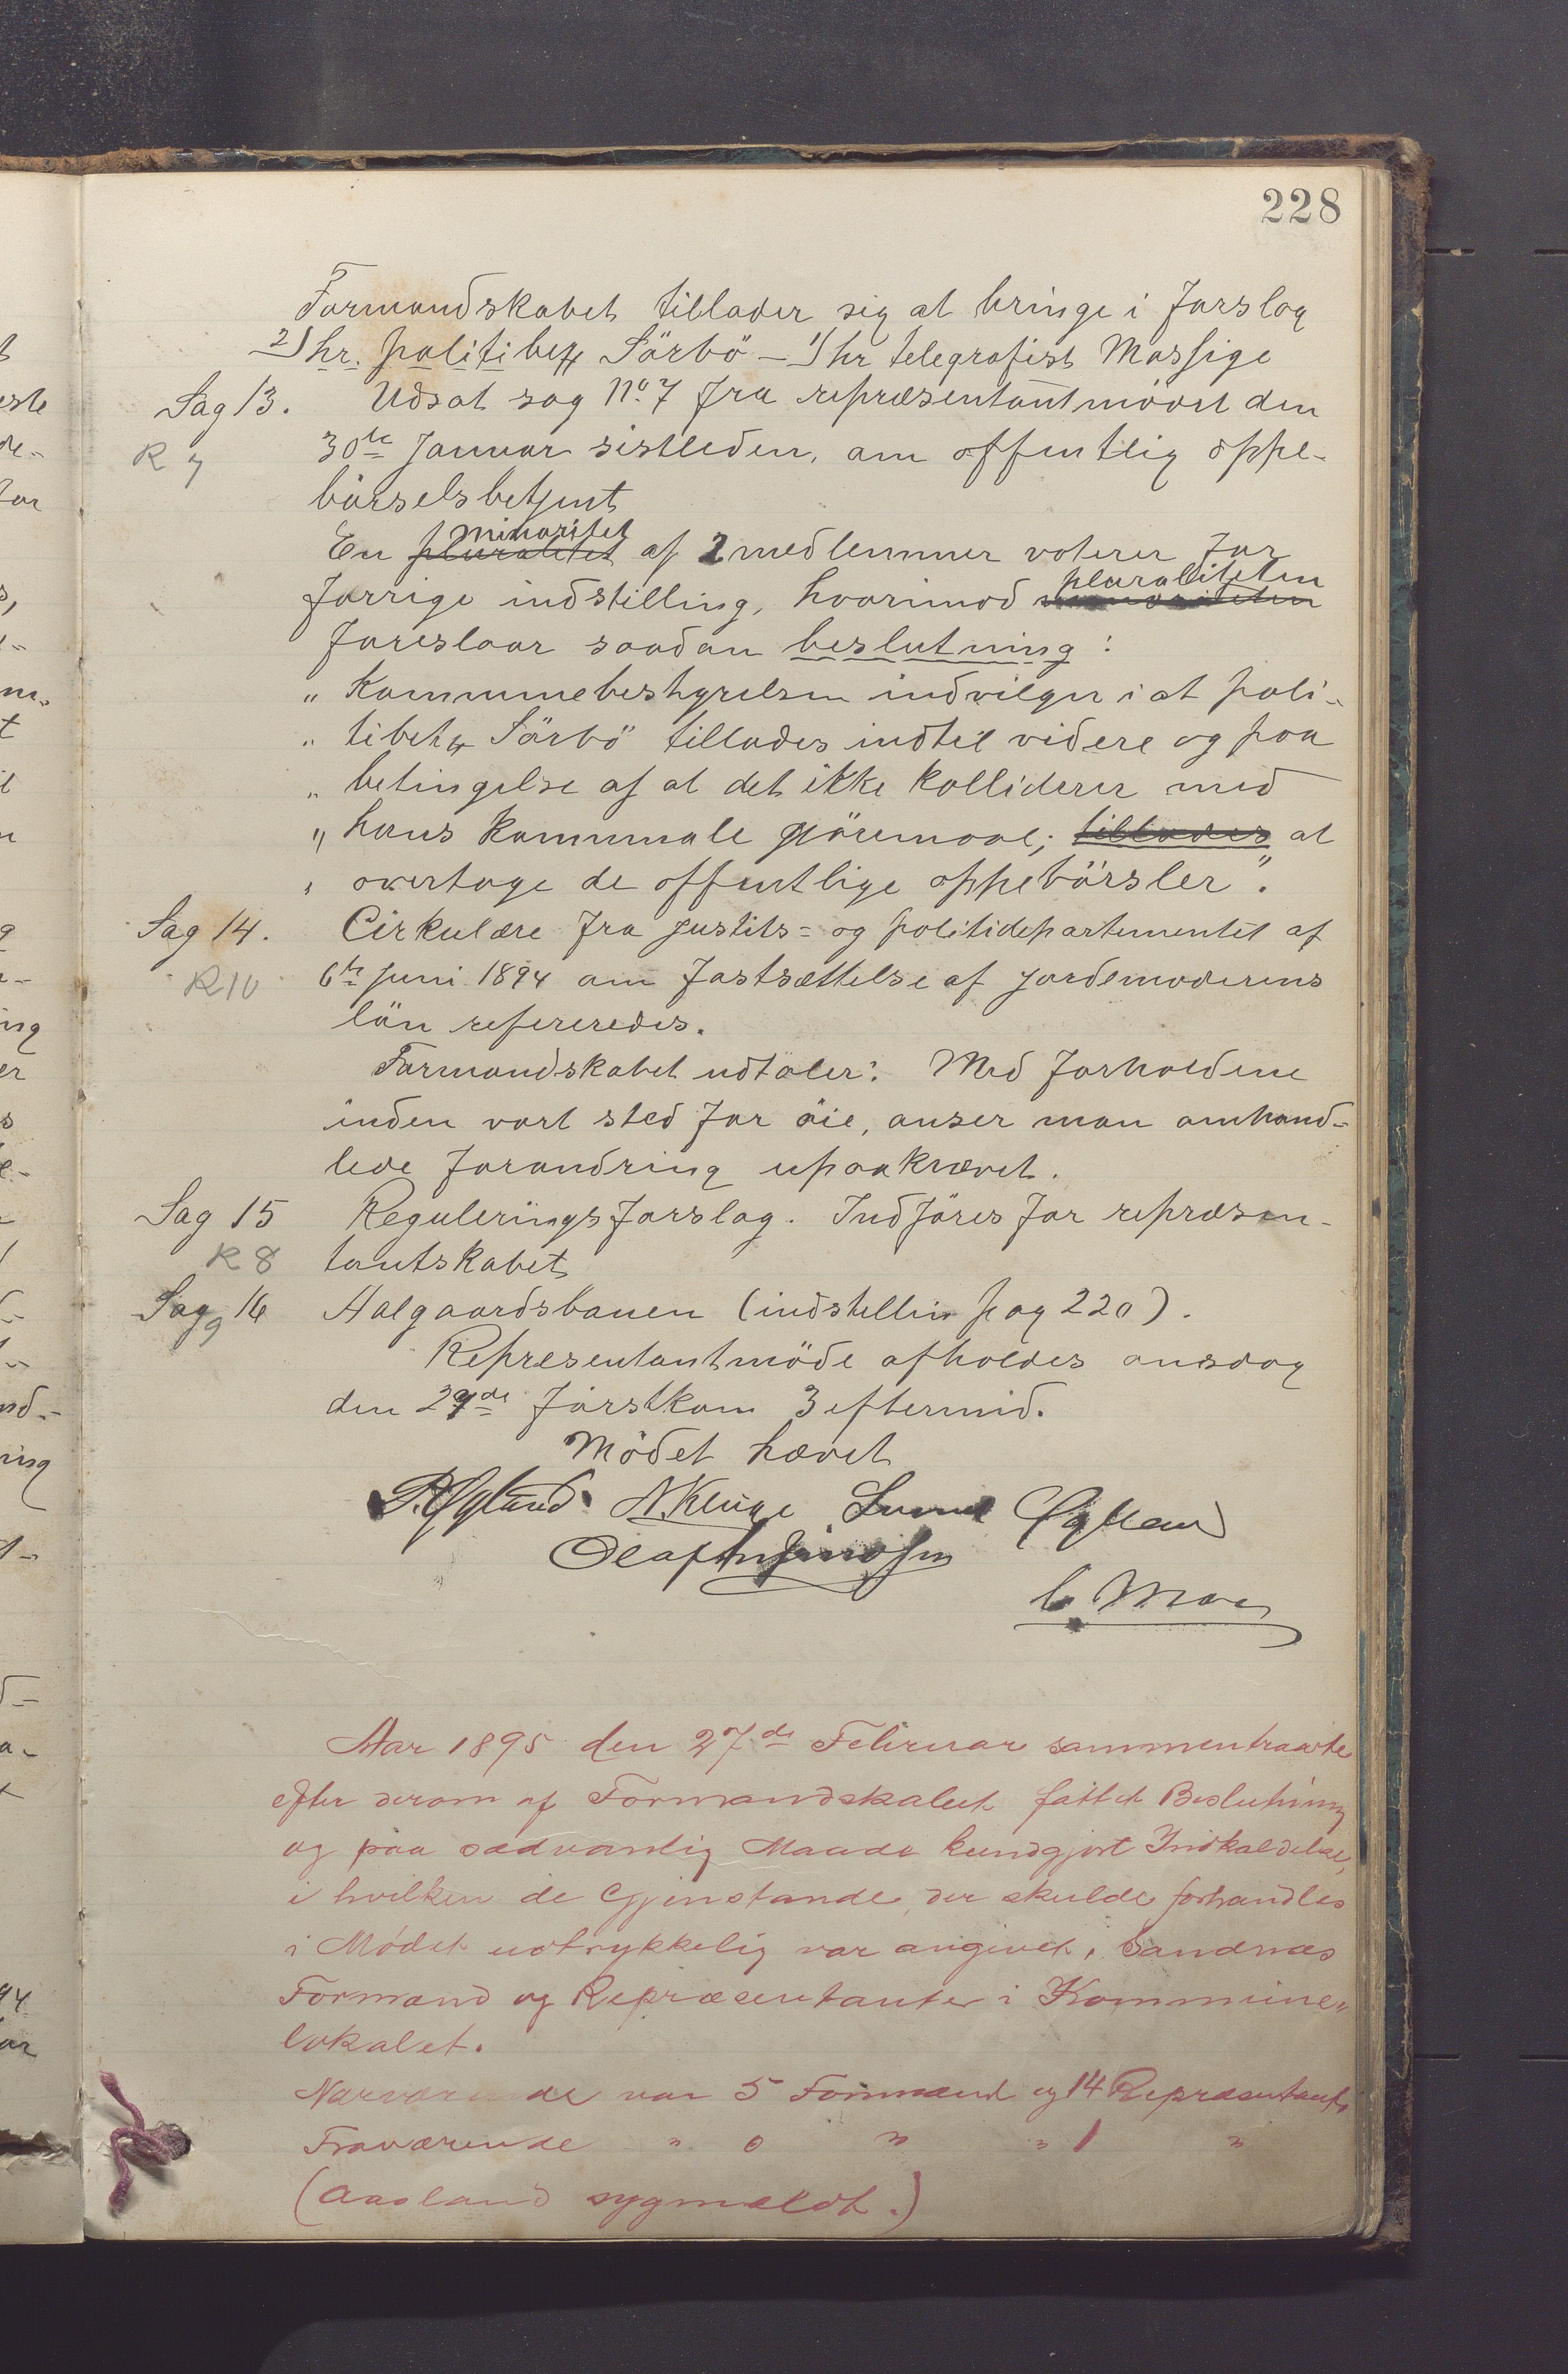 228
Formandskabet tillader sig at bringe i forslag
2) hr. politibetj. Sörbö — 1) hr telegrafist Massige
Sag 13. Udsat sag No. 7 fra repræsentantmödet den
R 7 30te Januar sistleden, om offentlig oppe-
börselsbetjent
minoritet
En pluralitet af 2 medlemmer voterer for
pluraliteten
forrige indstilling, hvorimod minoriteten
foreslaar saadan beslutning:
„ Kommunebestyrelsen indvilger i at poli-
„ tibetj. Sörbö tillades indtil videre og paa
„ betingelse af at det ikke kolliderer med
„ hans kommunale gjöremaal; tillades at
„ overtage de offentlige oppebörsler".
Sag 14. Cirkulære fra justits= og politidepartementet af
R 10 6te juni 1894 om fastsættelse af jordemoderens
lön refereredes.
Formandskabet udtaler: Med forholdene
inden vort sted for öie, anser man omhand=
lede forandring upaakrævet.
Sag 15 Reguleringsforslag. Indföres for repræsen-
R 8 tantskabet
Sag 16 Aalgaardsbanen (indstillin pag 220).
9
Representantmöde afholdes onsdag
den 27de förstkom 3 eftermid.
Mödet hævet
Aar 1895 den 27de Februar sammentraadte
efter derom af Formandskabet fattet Beslutning
og paa sædvanlig Maade kundgjort Indkaldelse,
i hvilken de Gjenstande, der skulde forhandles
i Mødet udtrykkelig var angivet, Sandnæs
Formænd og Repræsentanter i Kommune„
lokalet.
Nærværende var 5 Formænd og 14 Repræsentant.
Fraværende „ 0 „ „ 1 „
(Aasland sygmeldt.)